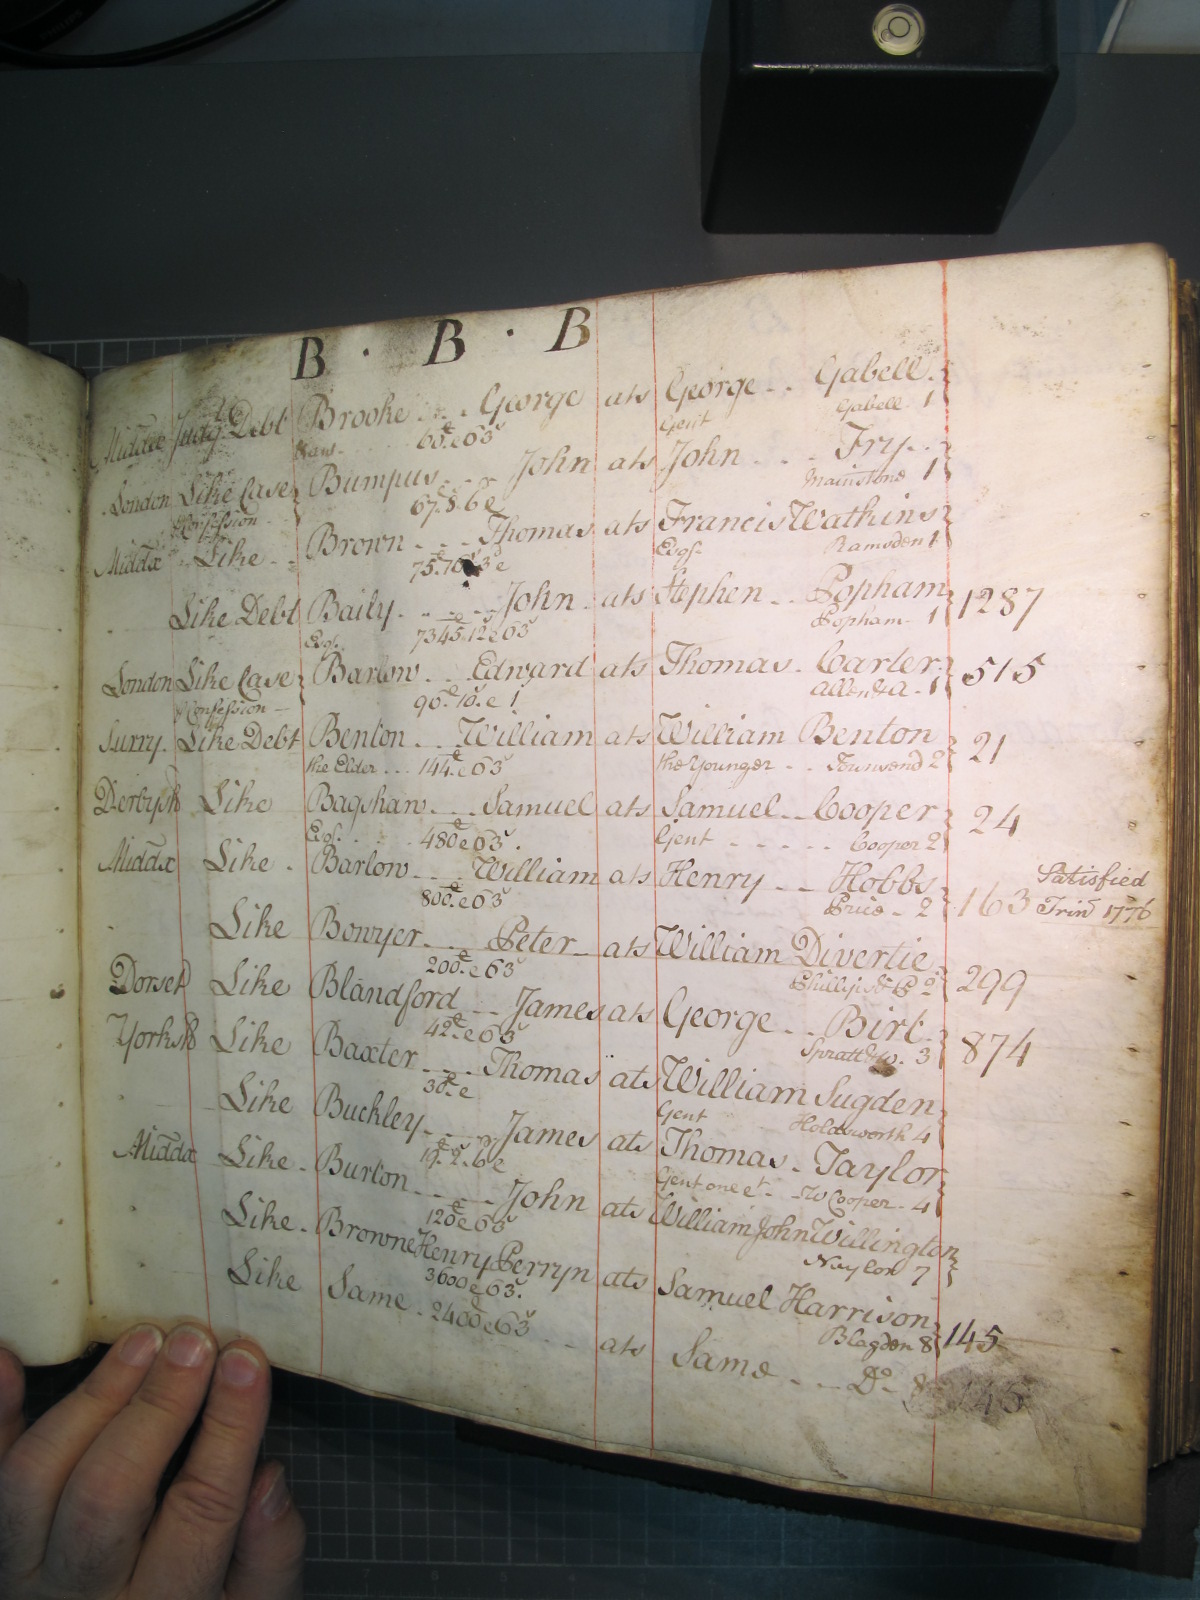 B . B . B
Middx Judgt Debt Brooke George ats George Gabell
60£ e 63s Gent Gabell 1
London Like Case Bumpus John ats John Fry
Confession 67. 8. 6 e Mainstone 1
Middx Like Brown Thomas ats Francis Watkins
75. 16 3 e Esqr Ramsden 1
Like Debt Baily John ats Stephen Popham 1287
Esqr 7345. 12 e 63s Popham 1
London Like Case Barlow Edward ats Thomas Carter 515
Confession 90£ 10s e 1 Allen & A 1
Surry Like Debt Benton William ats William Benton 21
the Elder 144£ e 63s the Younger Townsend 2
Derbysh Like Bagshaw Samuel ats Samuel Cooper 24
Esqr 480 e 63s Gent Cooper 2
Middx Like Barlow William ats Henry Hobbs 163 Satisfied
800£ e 63s Price 2 Trin 1776
Like Bowyer Peter ats William Divertie 299
200£ e 63s Phillips & P 2
Dorset Like Blandford James ats George Birt 874
42£ e 63s Spratt & W. 3
Yorksh Like Baxter Thomas ats William Sugden
30£ e Gent Holdsworth 4
Like Buckley James ats Thomas Taylor
19. 2. 6 e Gent one et W Cooper 4
Middx Like Burton John ats William John Willington
120 e 63s Naylor 7
Like Browne Henry Perryn ats Samuel Harrison 145
3600 e 63s Blagden 8
Like Same 2400 e 63s ats Same Do 8 145